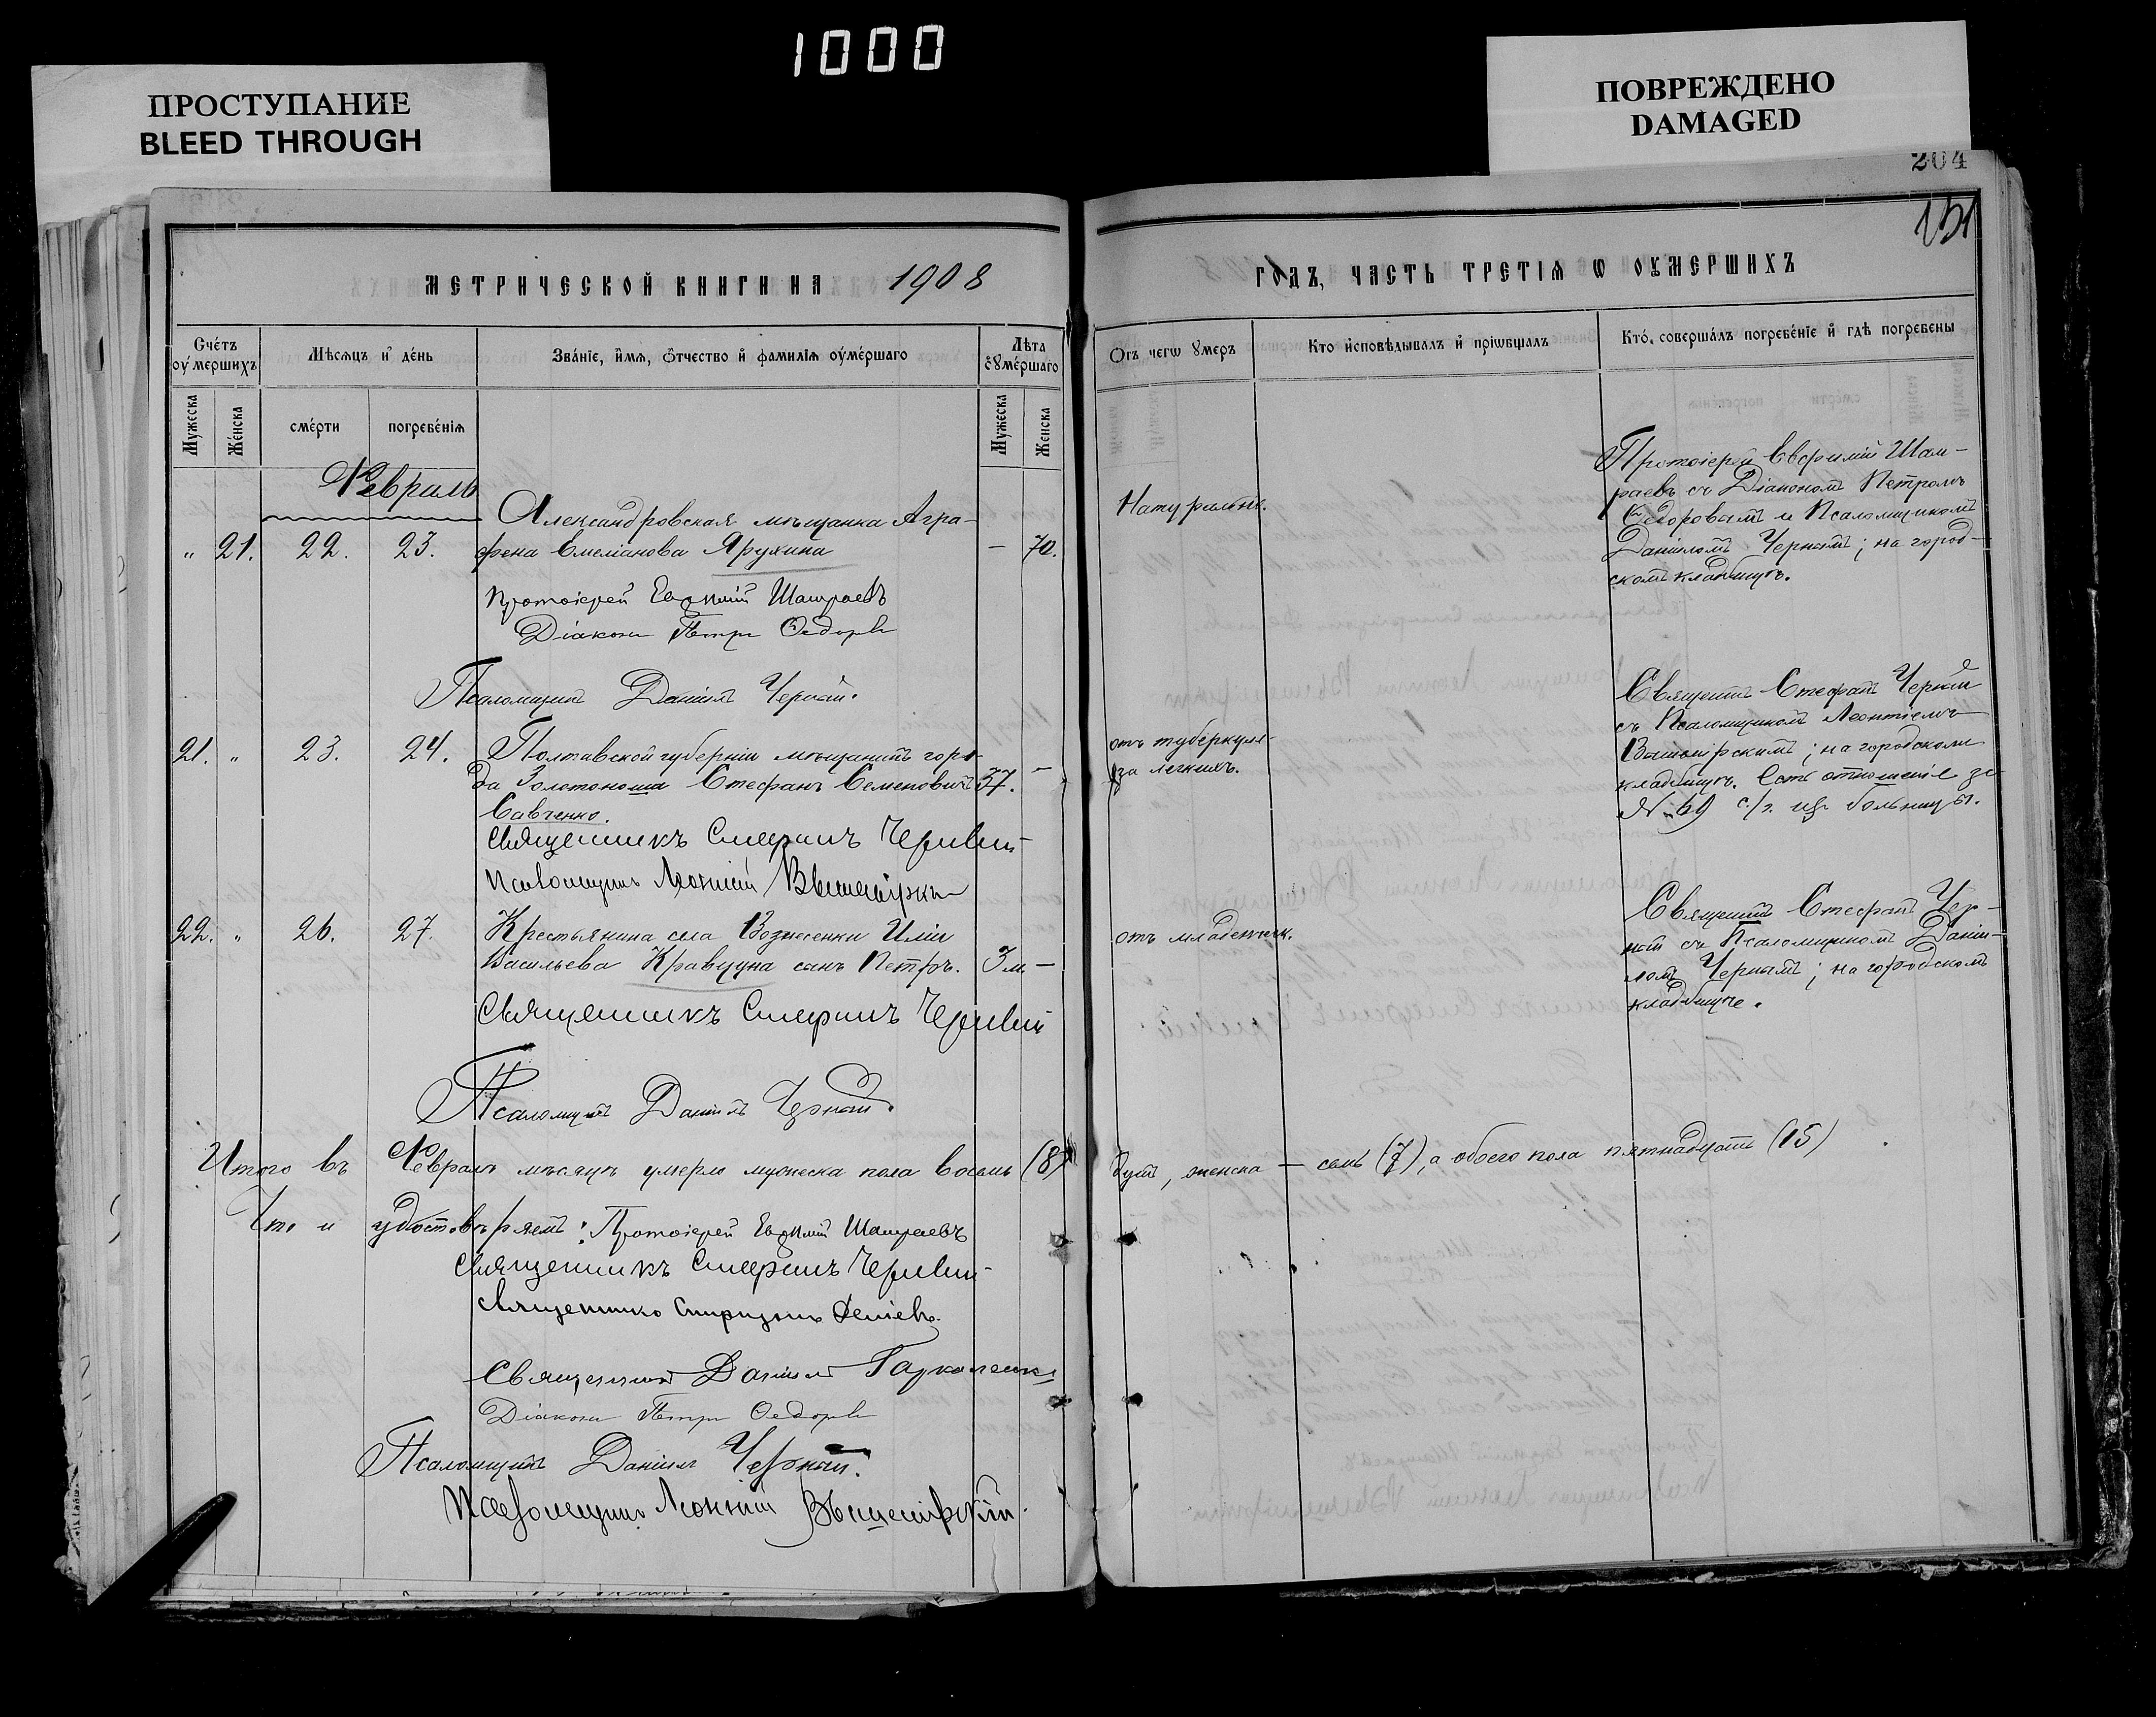 1000
ПРОСТУПАНИЕ
BLEED THROUGH
ПОВРЕЖДЕНО
DAMAGED
204
151
МЕТРИЧЕСКОЙ КНИГИ НА 1908
ГОДЪ, ЧАСТЬ ТРЕТІЯ Ѡ ОУМЕРШИХЪ
Счетъ оумершихъ
Мѣсяцъ и день
Званіе, имя, отчество и фамилія оумершаго
Лѣта оумершаго
Отъ чегѡ умеръ
Кто исповѣдывалъ и пріѡбщалъ
Кто совершалъ погребеніе и гдѣ погребены
Мужеска
Женска
смерти
погребенія
Мужеска
Женска
Февраль
" 21. 22. 23.
Александровская мѣщанка Агра-
фена Емеліанова Ярухина
— 70.
Натуральн.
Протоіерей Евфимій Шам-
раевъ съ Діакономъ Петромъ
Ѳедоровымъ и Псаломщикомъ
Даніиломъ Чернымъ; на город-
скомъ кладбищѣ.
Протоіерей Евфимій Шамраевъ
Діаконъ Петръ Ѳедоровъ
Псаломщикъ Даніилъ Черный.
21. " 23. 24.
Полтавской губерніи мѣщанинъ горо-
да Золотоноша Стефанъ Семеновичъ
Савченко.
37. —
отъ туберкуле-
за легкихъ.
Священникъ Стефанъ Черный
съ Псаломщикомъ Леонтіемъ
на городскомъ
кладбищѣ. Есть отношеніе за
№ 69 больницы.
Священникъ Стефанъ
Псаломщикъ Леонтій
22. " 26. 27.
Крестьянина села Вознесенки Иліи
Васильева Кравцуна сынъ Петръ.
3 м. —
отъ младенческ.
Священникъ Стефанъ Чер-
ный съ Псаломщикомъ Даніи-
ломъ Чернымъ; на городскомъ
кладбищѣ.
Священникъ Стефанъ
Псаломщикъ Даніилъ Черный.
Итого въ Февралѣ мѣсяцѣ умерло мужеска пола восемь (8)
душъ, женска — семь (7), а обоего пола пятнадцать (15)
Что и удостовѣряемъ: Протоіерей Евфимій Шамраевъ
Священникъ Стефанъ
Священникъ Спиридонъ
Священникъ Даніилъ
Діаконъ Петръ Ѳедоровъ
Псаломщикъ Даніилъ Черный.
Псаломщикъ Леонтій